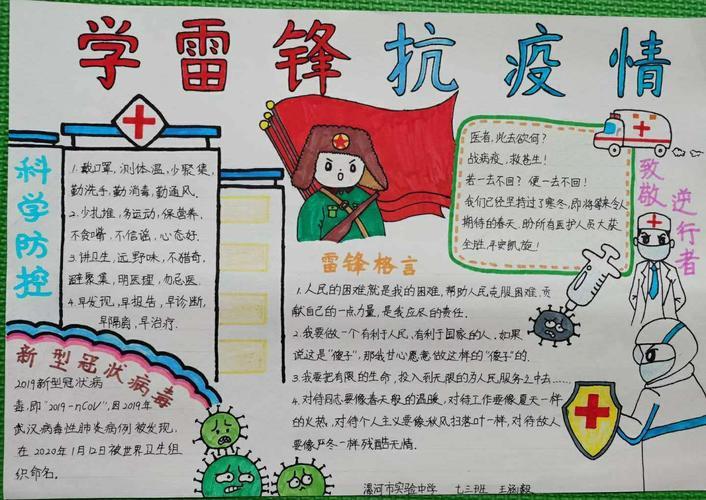 学雷锋抗疫情
科学防控
1.戴口罩,测体温,少聚集,
勤洗手,勤消毒,勤通风。
2.少扎堆,多运动,保营养,
不贪嘴,不信谣,心态好.
3.讲卫生,远野味,不猎奇,
避聚集,明医理,勿忌医.
4.早发现,早报告,早诊断,
早隔离,早治疗.
医者,此去欲何?
战病疫,救苍生!
若一去不回?便一去不回!
我们已经里挨过了寒冬,即将等来令人
期待的春天.助所有医护人员大获
全胜,平安凯旋!
致敬
逆行者
雷锋格言
1.人民的困难就是我的困难,帮助人民克服困难,贡
献自己的一点力量,是我应尽的责任.
2.我要做一个有利于人民,有利于国家的人.如果
说这是“傻子”,那我甘心愿意做这样的“傻子”的.
3.我要把有限的生命,投入到无限的为人民服务之中去……
4.对待同志要像春天般的温暖,对待工作要像夏天一样
的火热,对待个人主义要像秋风扫落叶一样,对待敌人
要像严冬一样残酷无情.
新型冠状病毒
2019新型冠状病
毒,即“2019-nCoV”,因2019年
武汉病毒性肺炎病例被发现,
在2020年1月12日被世界卫生组
织命名.
漯河市实验中学 七三班 王涵毅